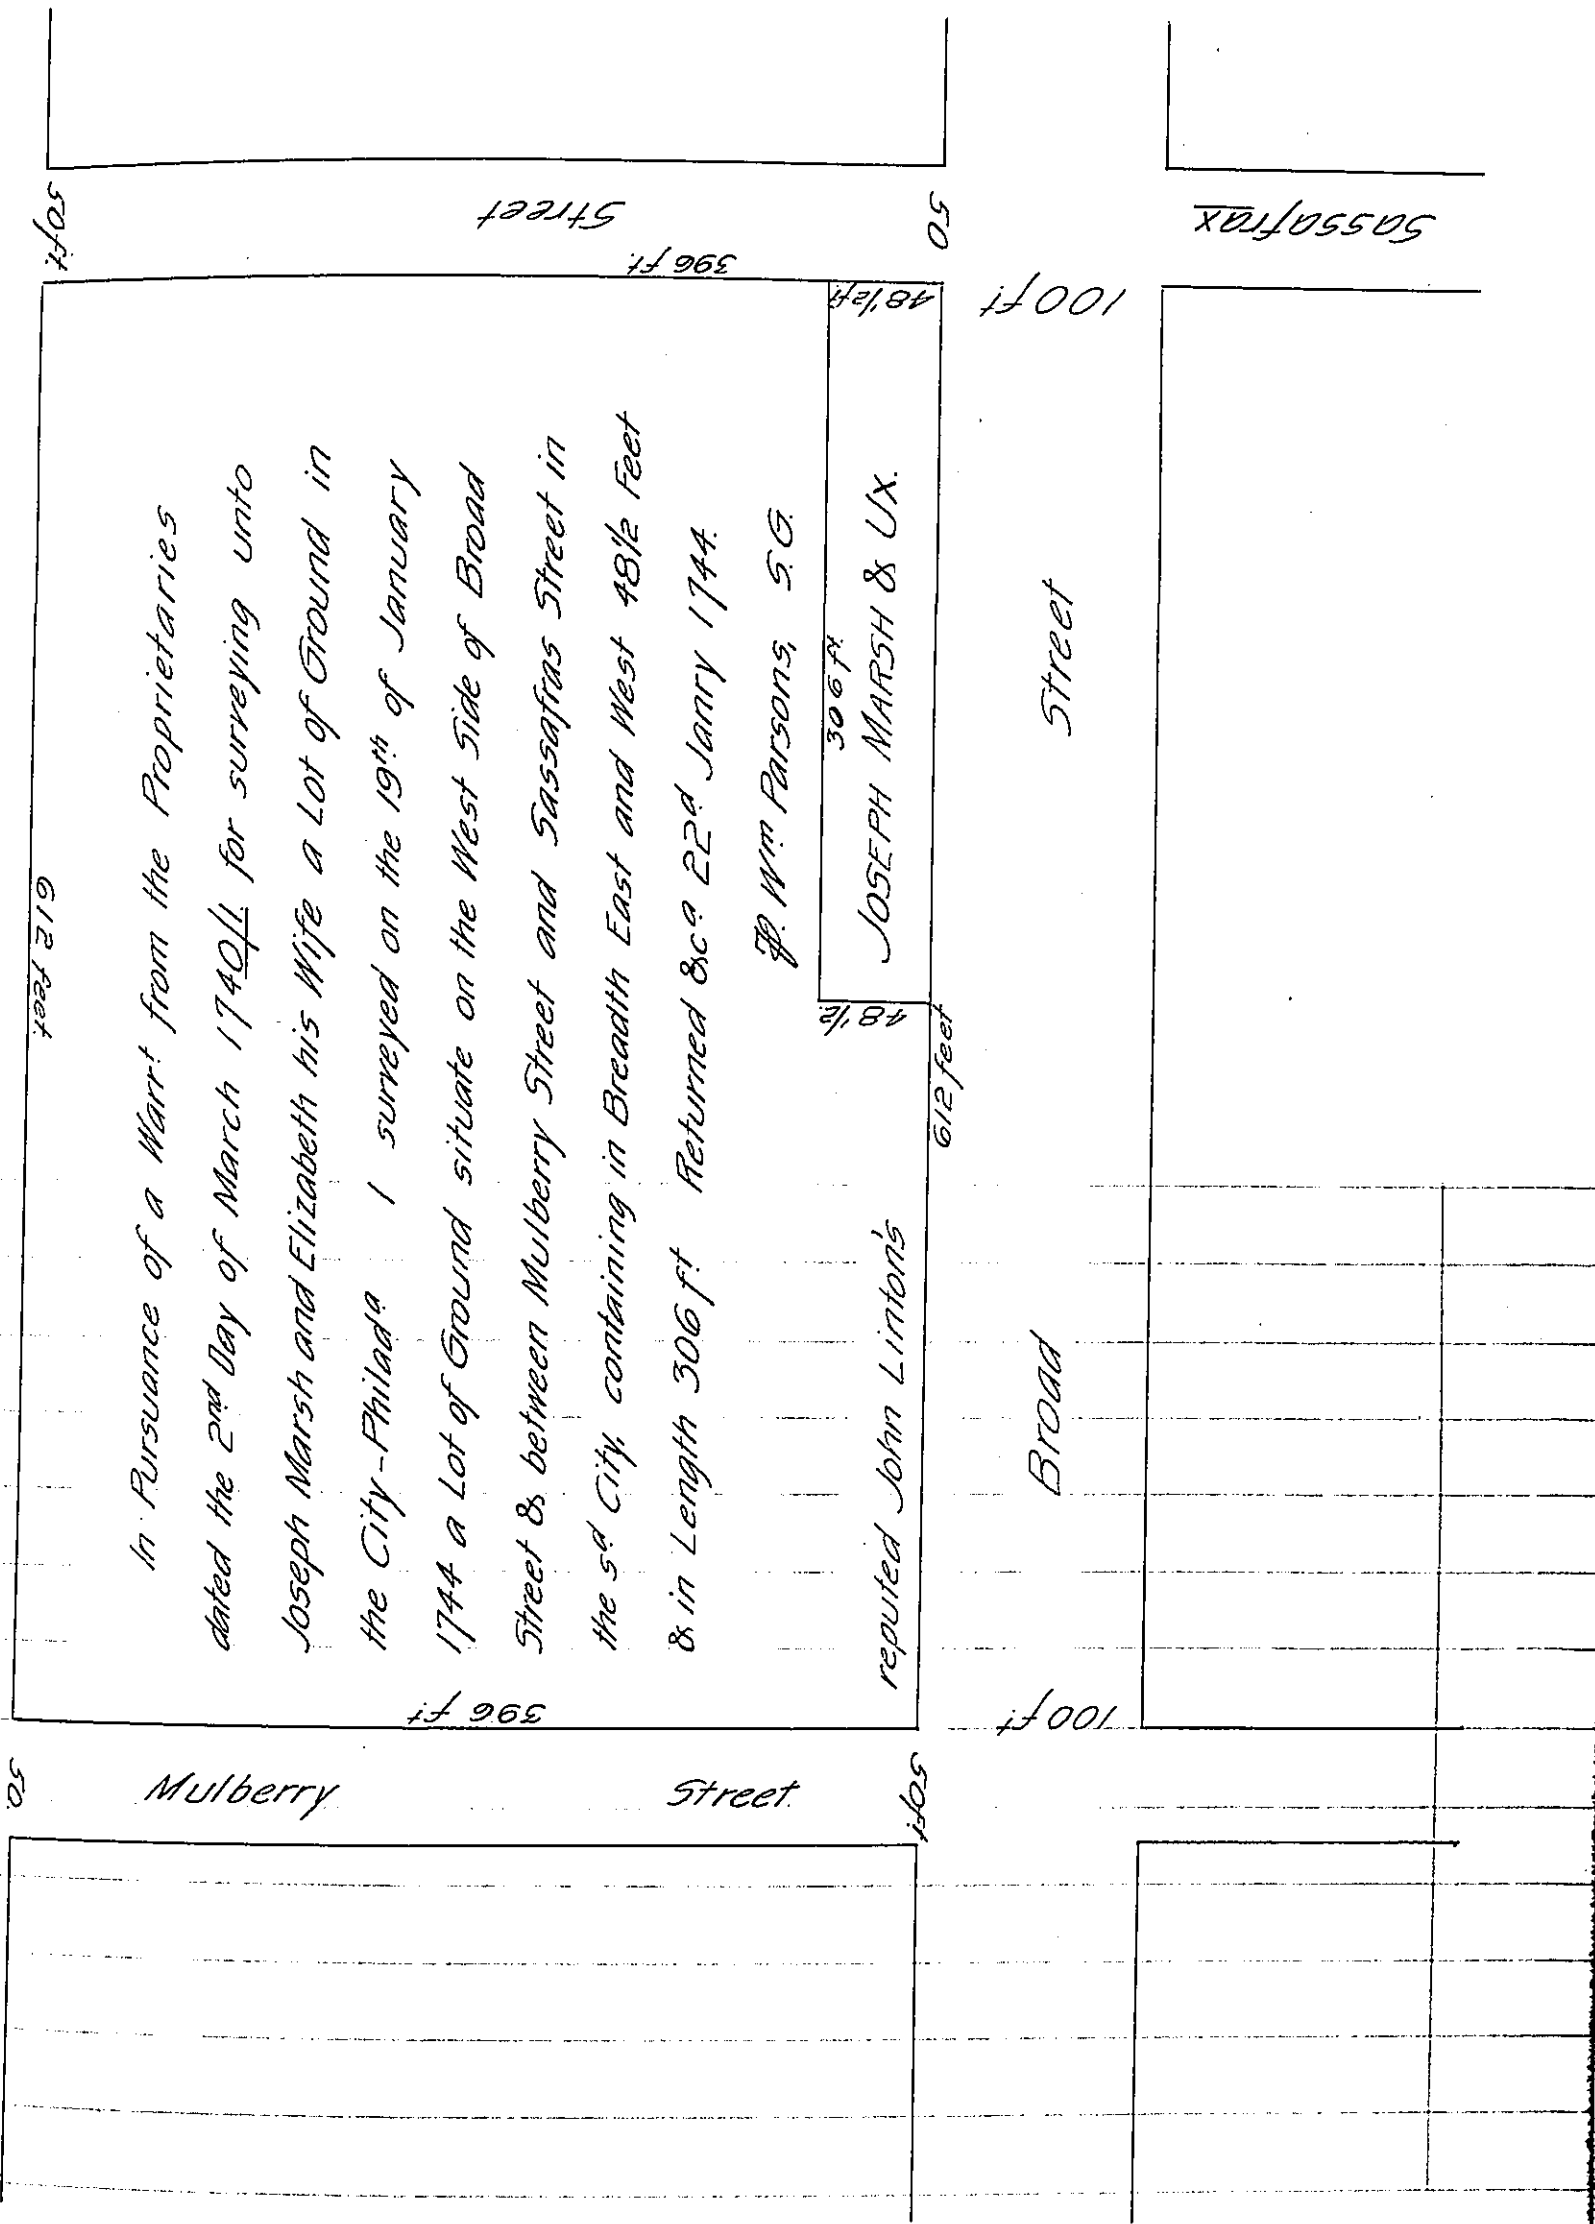 50 ft.
Street
50
Sassafrax
396 ft.
48½ ft
100 ft
612 feet.
In Pursuance of a Warrt from the Proprietaries
dated the 2nd Day of March 1740/1. for surveying unto
Joseph Marsh and Elizabeth his Wife a Lot of Ground in
the City-Philada I surveyed on the 19th of January
1744 a Lot of Ground situate on the West Side of Broad
Street & between Mulberry Street and Sassafras Street in
the sd City, containing in Breadth East and West 48½ Feet
& in Length 306 ft Returned &ca 22d Janry 1744.
P. Wm Parsons, S.G.
306 ft.
JOSEPH MARSH & UX.
48½
reputed John Linton's
612 feet
Broad Street
396 ft
100 ft
50.
Mulberry Street.
50 ft